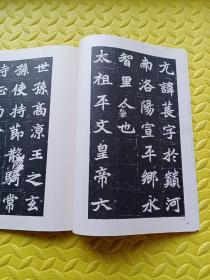 元諱萇字於巔河
南洛陽宣平鄉永
智里人也
太祖平文皇帝六
世孫高涼王之玄
孫使持節散騎常